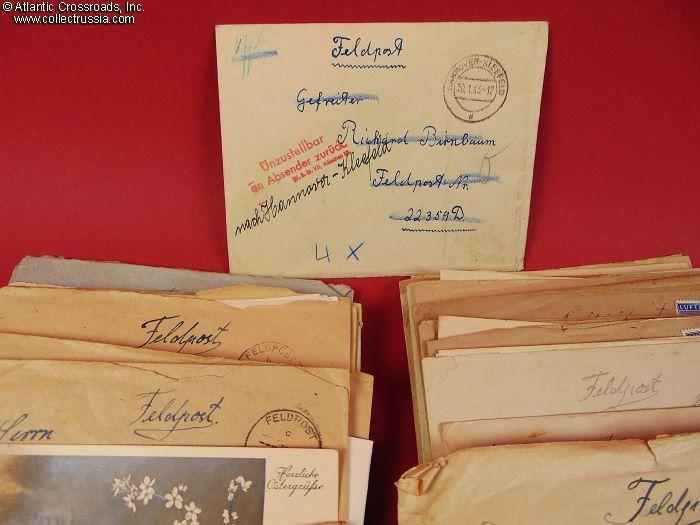 © Atlantic Crossroads, Inc.
www.collectrussia.com
Feldpost
HANNOVER-KLEEFELD
30.1.43-12
d
Gefreiter
Richard Birnbaum
Feldpost Nr.
22359D
Unzustellbar
an Absender zurück
nach Hannover-Kleefeld
4 X
Feldpost
FELDPOST
Feldpost
FELDPOST
c
Herrn
Herzliche
Ostergrüße
LUFT
Feldpost
Feldp